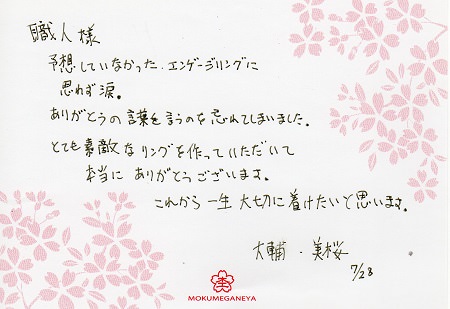 職人様
予想していなかった、エンゲージリングに
思わず涙。
ありがとうの言葉を言うのを忘れてしまいました。
とても素敵なリングを作っていただいて
本当にありがとうございます。
これから一生大切に着けたいと思います。
大輔・美桜
7/28
杢
MOKUMEGANEYA